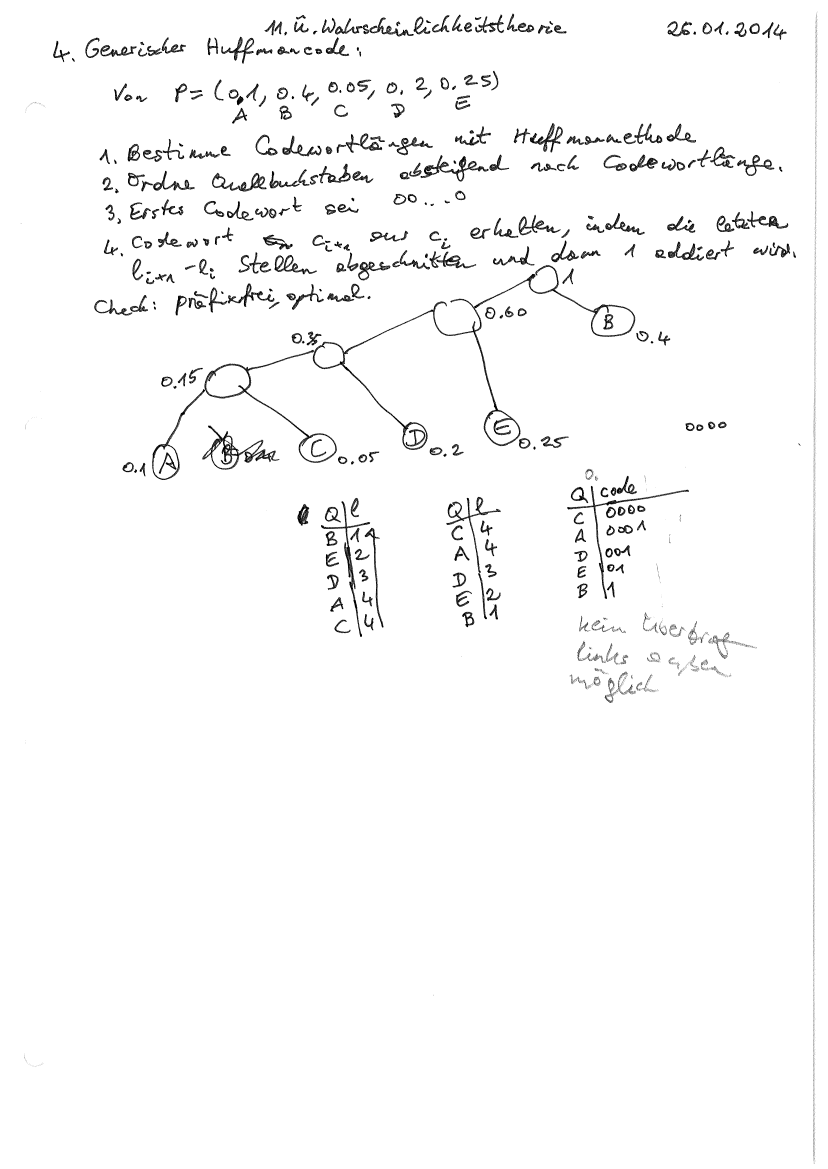 11. Ü. Wahrscheinlichkeitstheorie 26.01.2014
4. Generischer Huffmancode:
Von P=(0,1, 0.4, 0.05, 0.2, 0.25)
A B C D E
1. Bestimme Codewortlängen mit Huffmanmethode
2. Ordne Quellbuchstaben absteigend nach Codewortlänge.
3. Erstes Codewort sei 00...0
4. Codewort c_{i+1} aus c_i erhalten, indem die letzten
l_{i+1}-l_i Stellen abgeschnitten und dann 1 addiert wird.
Check: präfixfrei, optimal.
1
0.60
B
0.4
0.35
0.15
0.1 A
C 0.05
D 0.2
E 0.25
0000
Q l
B 1
E 2
D 3
A 4
C 4
Q l
C 4
A 4
D 3
E 2
B 1
0.
Q code
C 0000
A 0001
D 001
E 01
B 1
kein Übertrag
links außen
möglich